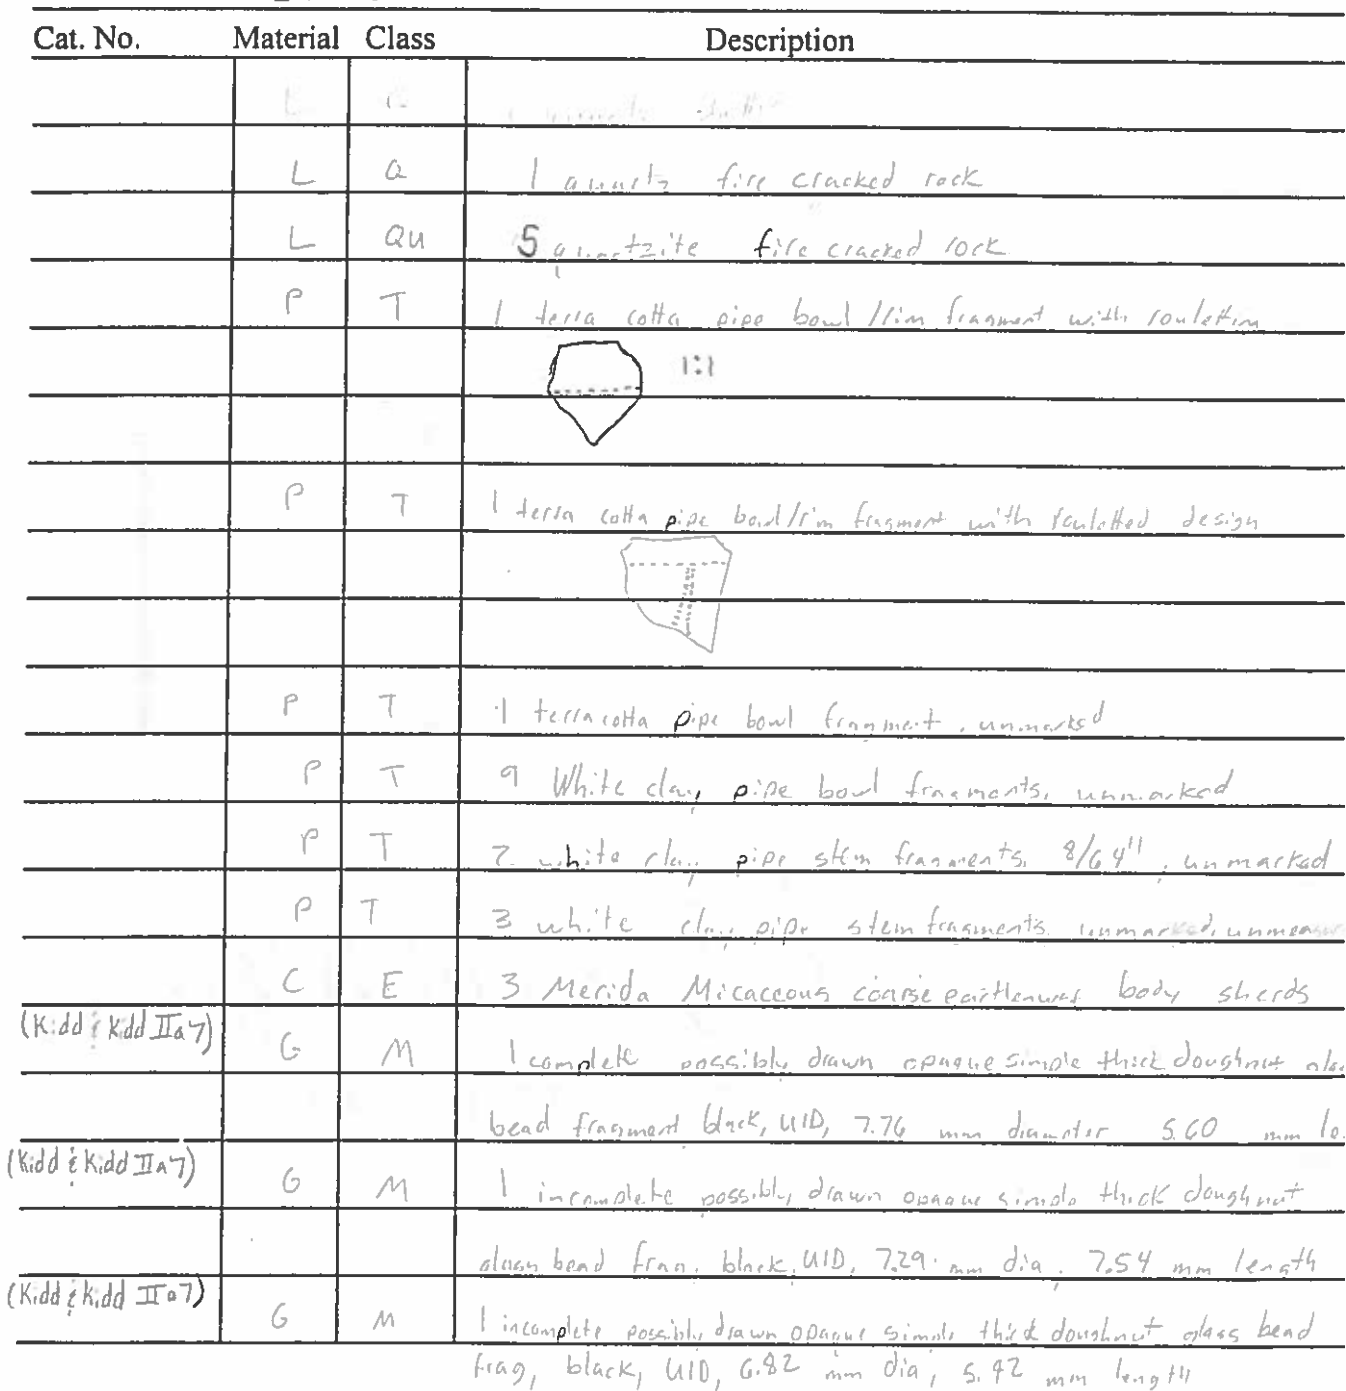 Cat. No. Material Class Description
L
L Q 1 quartz fire cracked rock
L QU 5 quartzite fire cracked rock
P T 1 terra cotta pipe bowl/rim fragment with rouletting
1:1
P T 1 terra cotta pipe bowl/rim fragment with rouletted design
P T 1 terra cotta pipe bowl fragment, unmarked
P T 9 White clay pipe bowl fragments, unmarked
P T 2 white clay pipe stem fragments, 8/64", unmarked
P T 3 white clay pipe stem fragments, unmarked, unmeasured
C E 3 Merida Micaceous coarse earthenware body sherds
(Kidd & Kidd IIa7) G M 1 complete possibly drawn opaque simple thick doughnut glass
bead fragment black, UID, 7.76 mm diameter 5.60 mm le
(Kidd & Kidd IIa7) G M 1 incomplete possibly drawn opaque simple thick doughnut
glass bead frag, black, UID, 7.29 mm dia, 7.54 mm length
(Kidd & Kidd IIa7) G M 1 incomplete possibly drawn opaque simple thick doughnut glass bead
frag, black, UID, 6.82 mm dia, 5.92 mm length